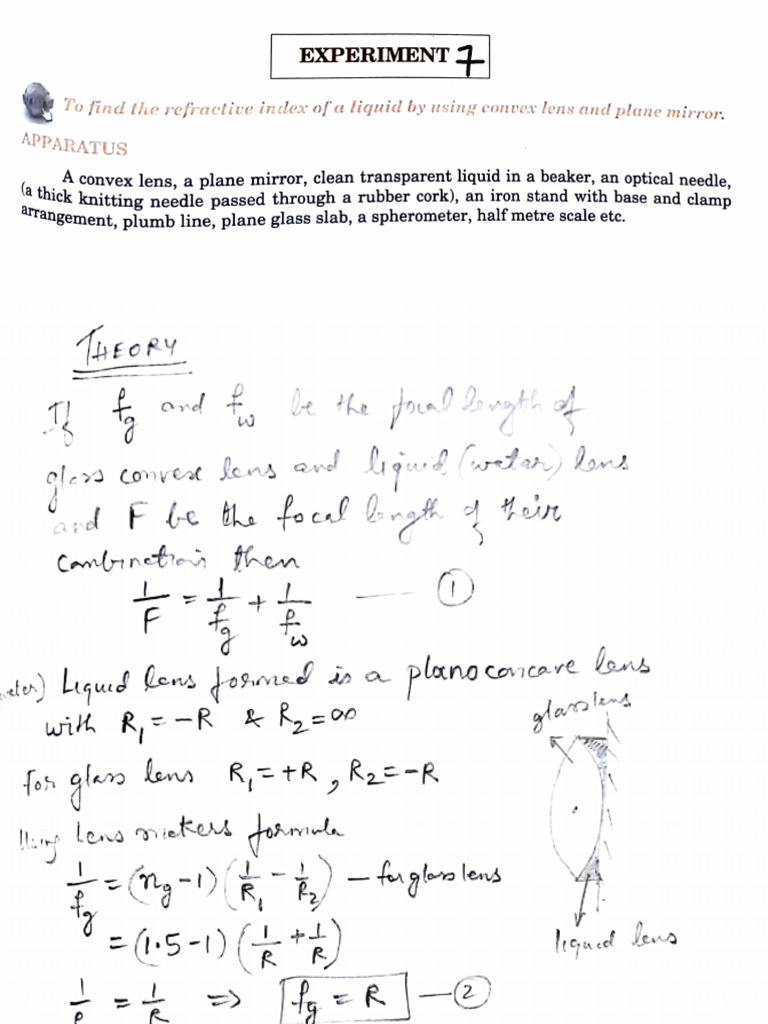 EXPERIMENT 7
To find the refractive index of a liquid by using convex lens and plane mirror.
APPARATUS
A convex lens, a plane mirror, clean transparent liquid in a beaker, an optical needle,
(a thick knitting needle passed through a rubber cork), an iron stand with base and clamp
arrangement, plumb line, plane glass slab, a spherometer, half metre scale etc.
THEORY
If fg and fw be the focal length of
glass convex lens and liquid (water) lens
and F be the focal length of their
combination then
1/F = 1/fg + 1/fw —— ①
Liquid lens formed is a planoconcave lens
with R₁ = -R & R₂ = ∞
glass lens
for glass lens R₁ = +R , R₂ = -R
Using lens makers formula
1/fg = (ng - 1) (1/R₁ - 1/R₂) — for glass lens
= (1.5 - 1) (1/R + 1/R)
liquid lens
= 1/R => fg = R — ②